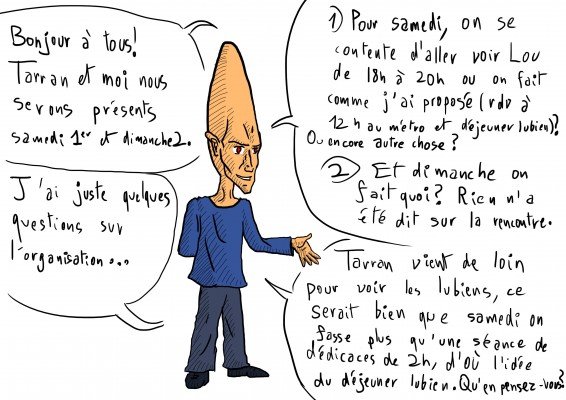 Bonjour à tous!
Tarran et moi nous
serons présents
samedi 1er et dimanche 2.
J'ai juste quelques
questions sur
l'organisation...
1) Pour samedi, on se
contente d'aller voir Lou
de 18h à 20h ou on fait
comme j'ai proposé (rdv à
12h au métro et déjeuner lubien)?
Ou encore autre chose?
2) Et dimanche on
fait quoi? Rien n'a
été dit sur la rencontre.
Tarran vient de loin
pour voir les lubiens, ce
serait bien que samedi on
fasse plus qu'une séance de
dédicaces de 2h, d'où l'idée
du déjeuner lubien. Qu'en pensez-vous?